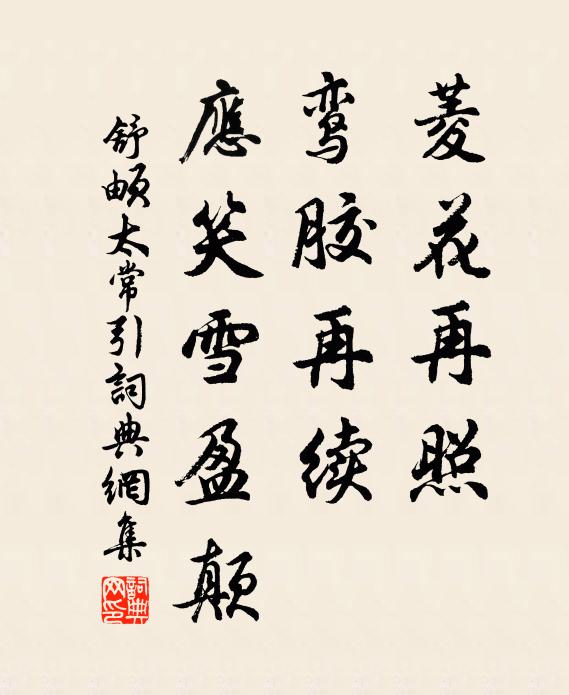 菱花再照
鸾胶再续
應笑雪盈颠
舒頔太常引詞典網集
詞典网印